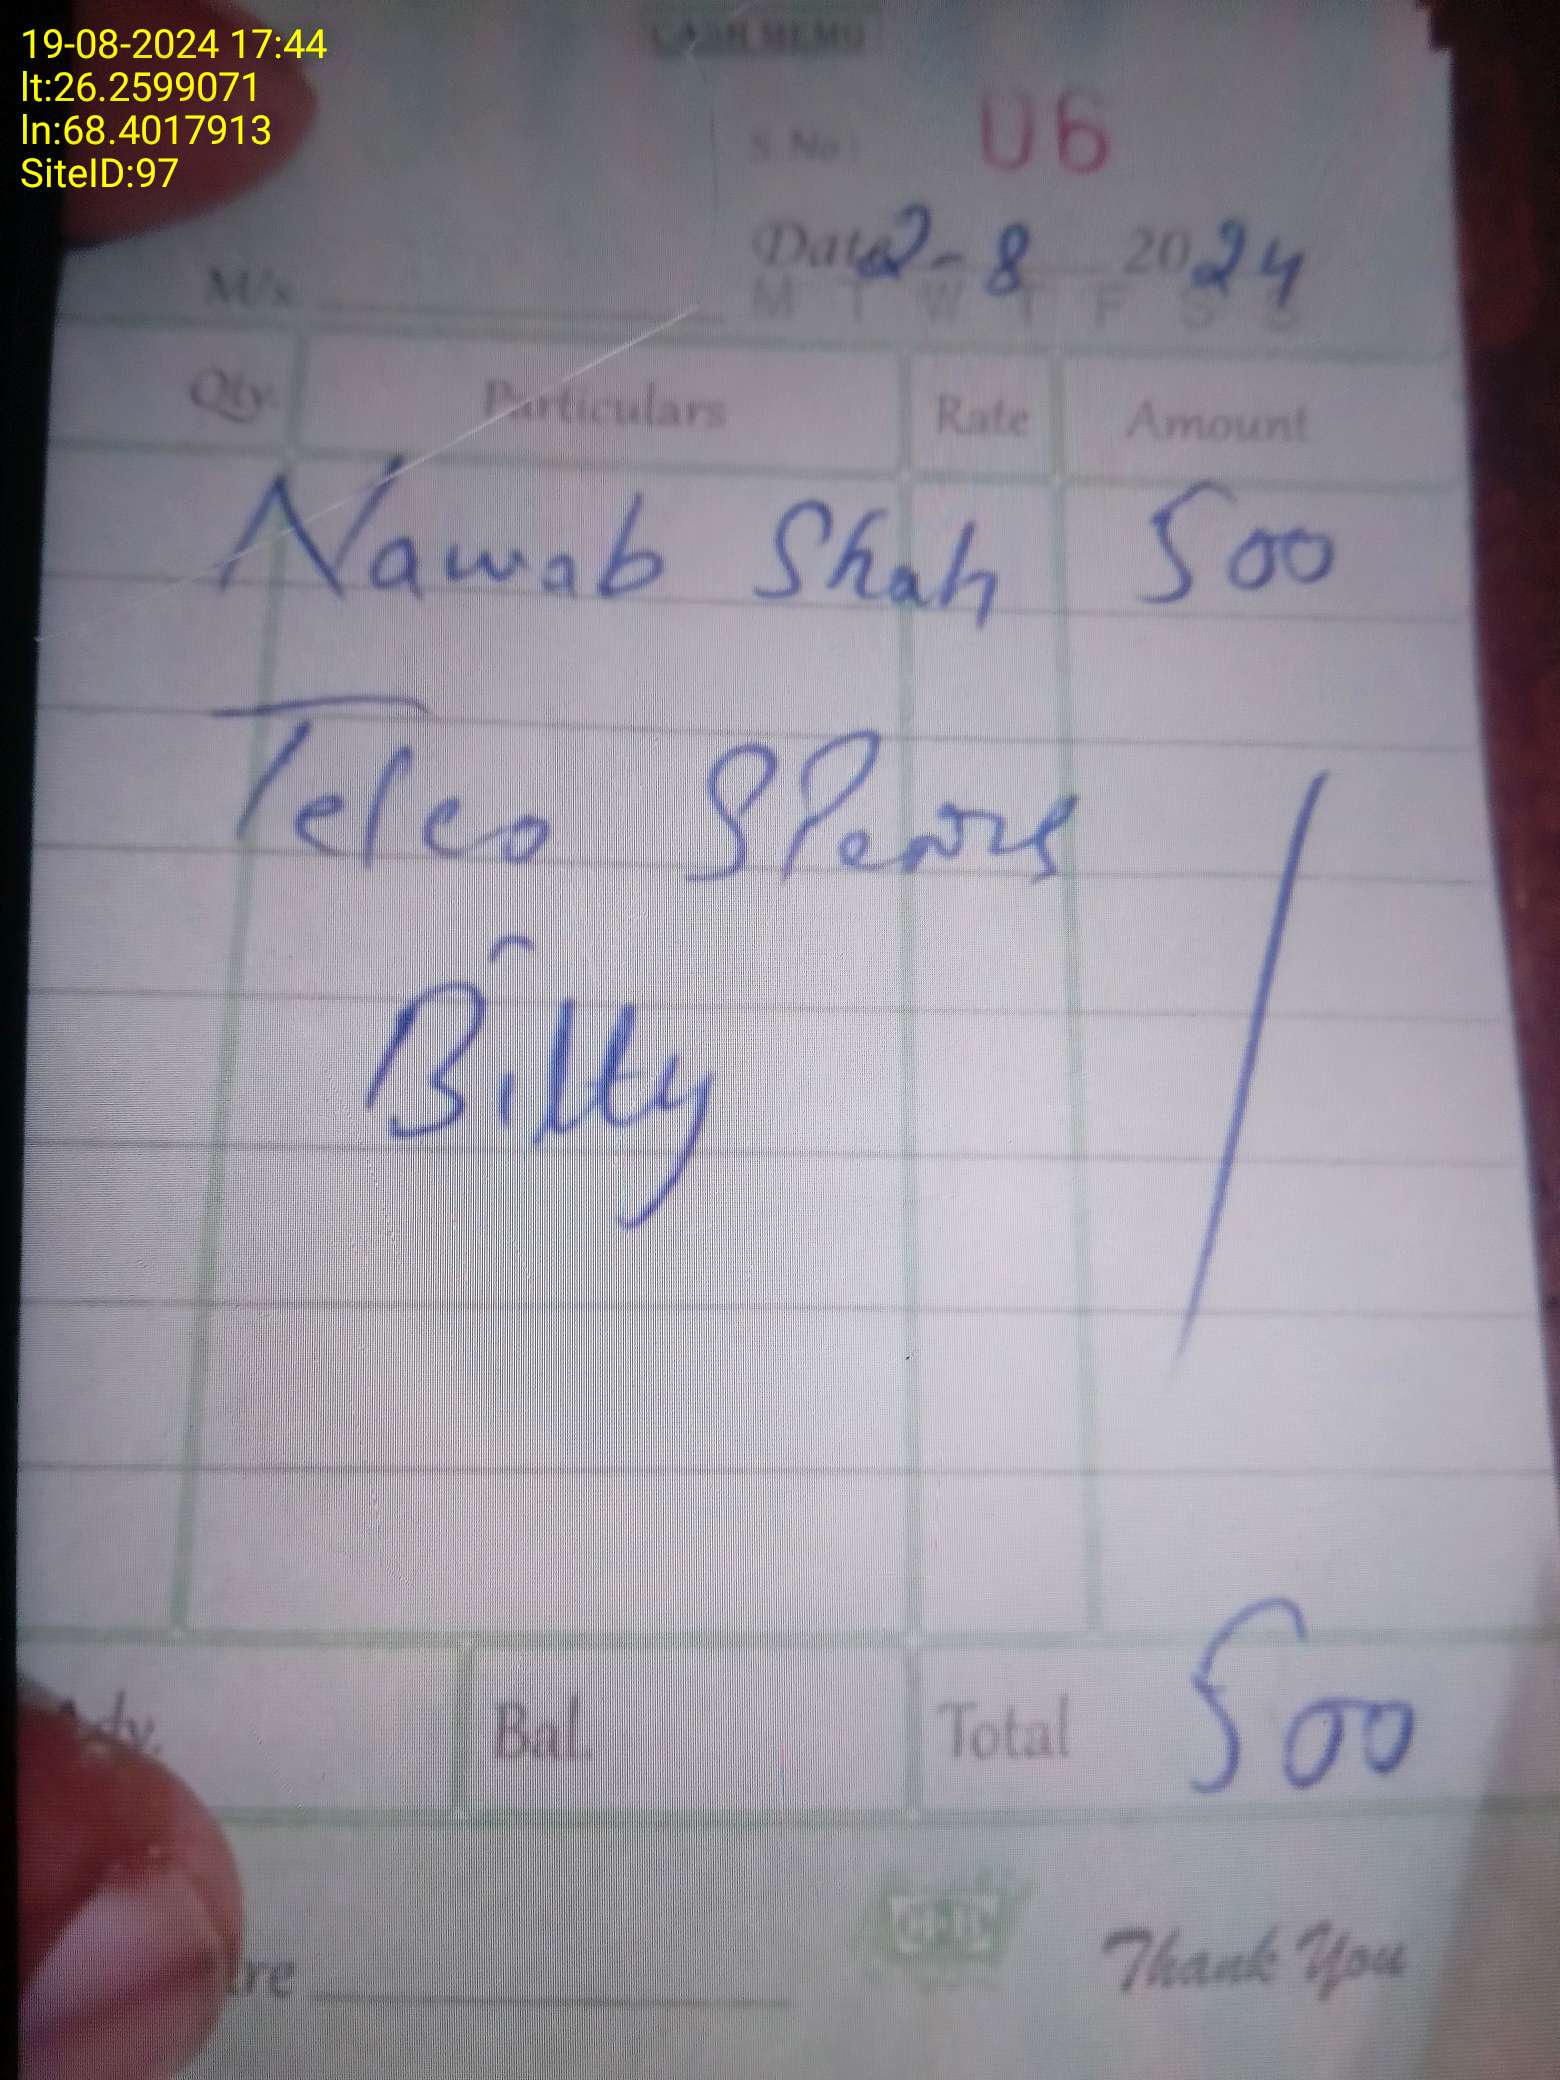 19-08-2024 17:44
lt:26.2599071
ln:68.4017913
SiteID:97
CASH MEMO
S. No. 06
Date 2-8 2024
M T W T F S S
M/s
Qty. Particulars Rate Amount
Nawab Shah 500
Telco
Bilty
Adv. Bal. Total 500
Thank You